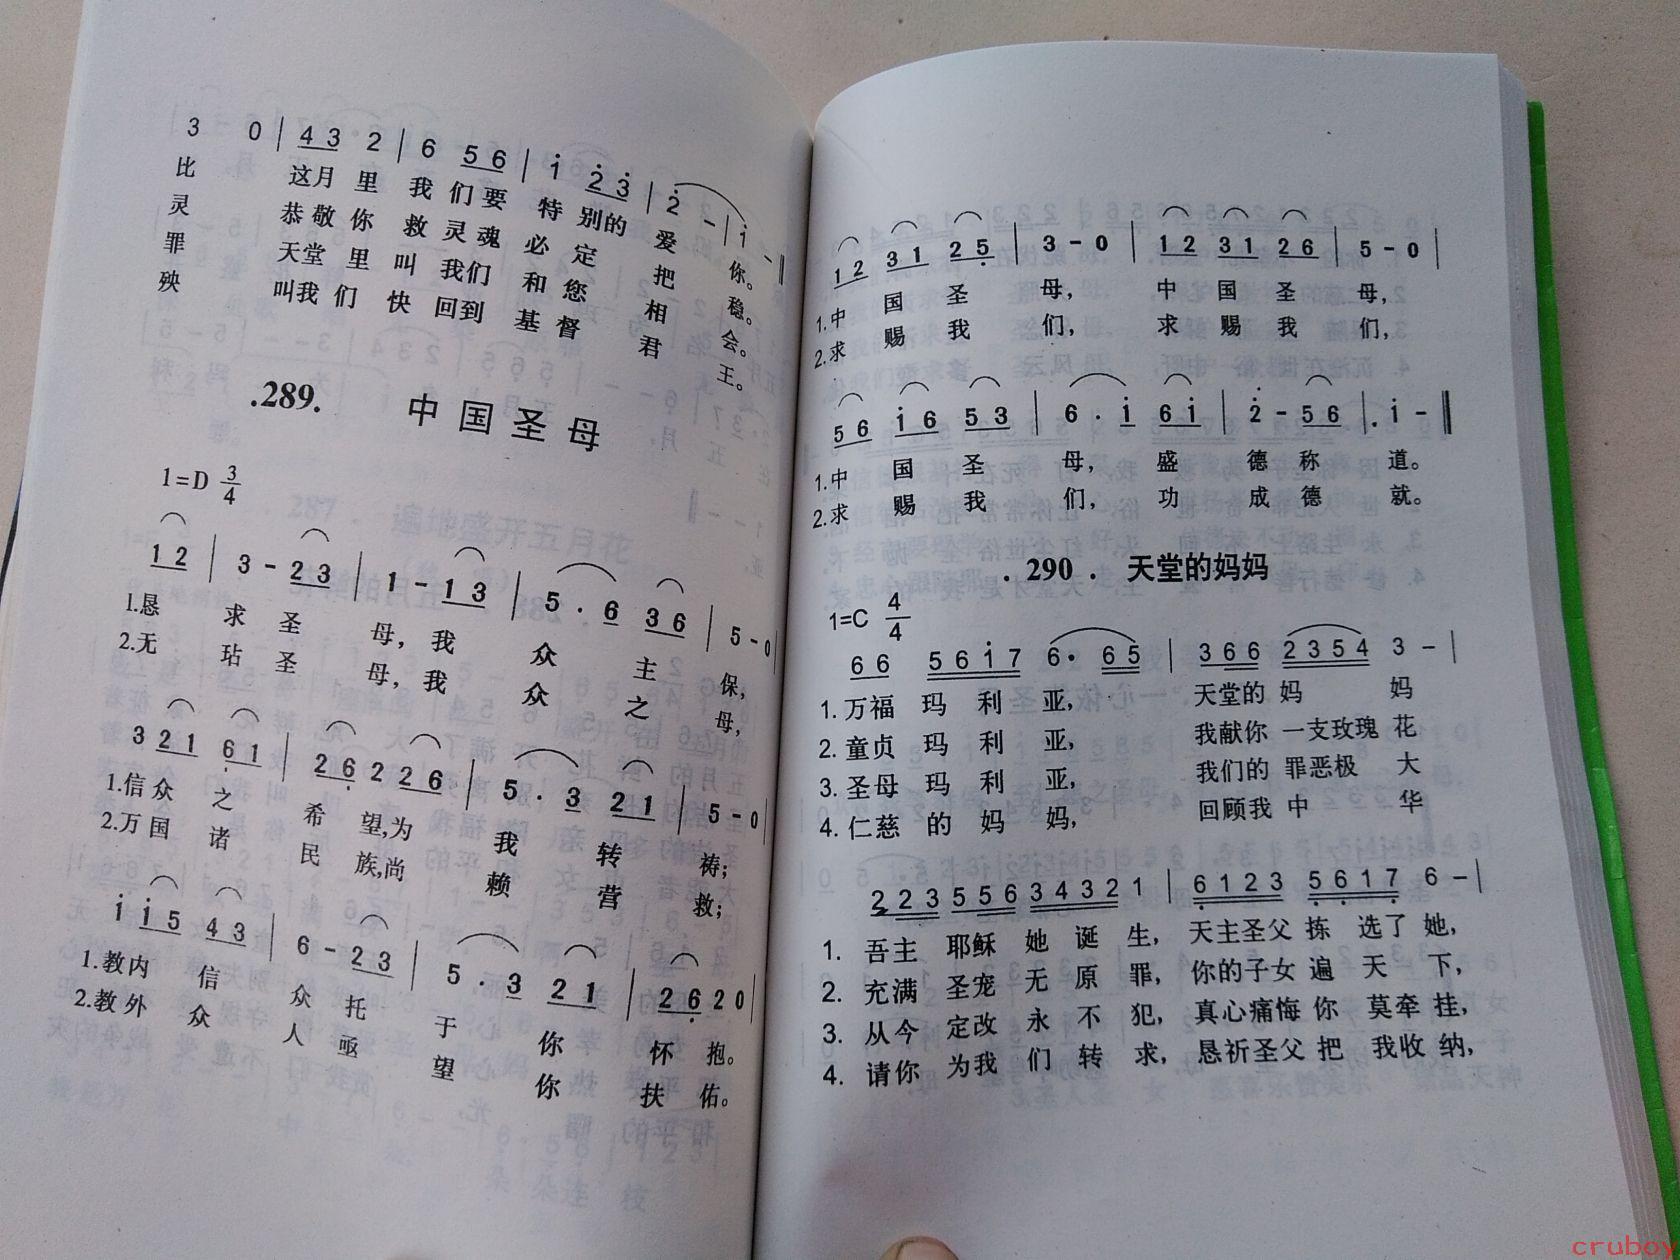 3 0 | 43 2 | 6 56 | 1 23 | 2 - | 1 - ‖
比 这月 里 我 们要 特 别的 爱 你。
灵 恭敬 你 救 灵魂 必 定 把 稳。
罪 天堂 里 叫 我们 和 您 相 会。
殃 叫我 们 快 回到 基 督 君 王。
.289. 中国圣母
1=D 3/4
12 | 3 - 23 | 1 - 13 | 5 · 6 36 | 5 - 0 |
1.恳 求 圣 母,我 众 主 保,
2.无 玷 圣 母,我 众 之 母,
3 21 61 | 26 2 26 | 5 · 3 21 | 5 - 0 |
1.信众 之 希 望,为 我 转 祷;
2.万国 诸 民 族,尚 赖 营 救;
1 15 43 | 6 - 23 | 5 · 3 21 | 26 2 0 |
1.教内 信 众 托 于 你 怀 抱。
2.教外 众 人 亟 望 你 扶 佑。
12 31 25 | 3 - 0 | 12 31 26 | 5 - 0 |
1.中 国 圣 母, 中 国 圣 母,
2.求 赐 我 们, 求 赐 我 们,
56 16 53 | 6 · 1 61 | 2 - 56 | 1 - ‖
1.中 国 圣 母, 盛 德 称 道。
2.求 赐 我 们, 功 成 德 就。
. 290 . 天堂的妈妈
1=C 4/4
66 5617 6· 65 | 366 2354 3 - |
1. 万福 玛 利 亚, 天堂的 妈 妈
2. 童贞 玛 利 亚, 我献你 一支玫瑰 花
3. 圣母 玛 利 亚, 我们的 罪恶极 大
4. 仁慈 的 妈 妈, 回顾我 中 华
223 556 34321 | 6123 5617 6 - |
1. 吾主 耶稣 她 诞 生, 天主圣父 拣 选了 她,
2. 充满 圣宠 无 原 罪, 你的子女 遍 天 下,
3. 从今 定改 永 不 犯, 真心痛悔 你 莫牵 挂,
4. 请你 为我 们 转 求, 恳祈圣父 把 我收 纳,
cruboy